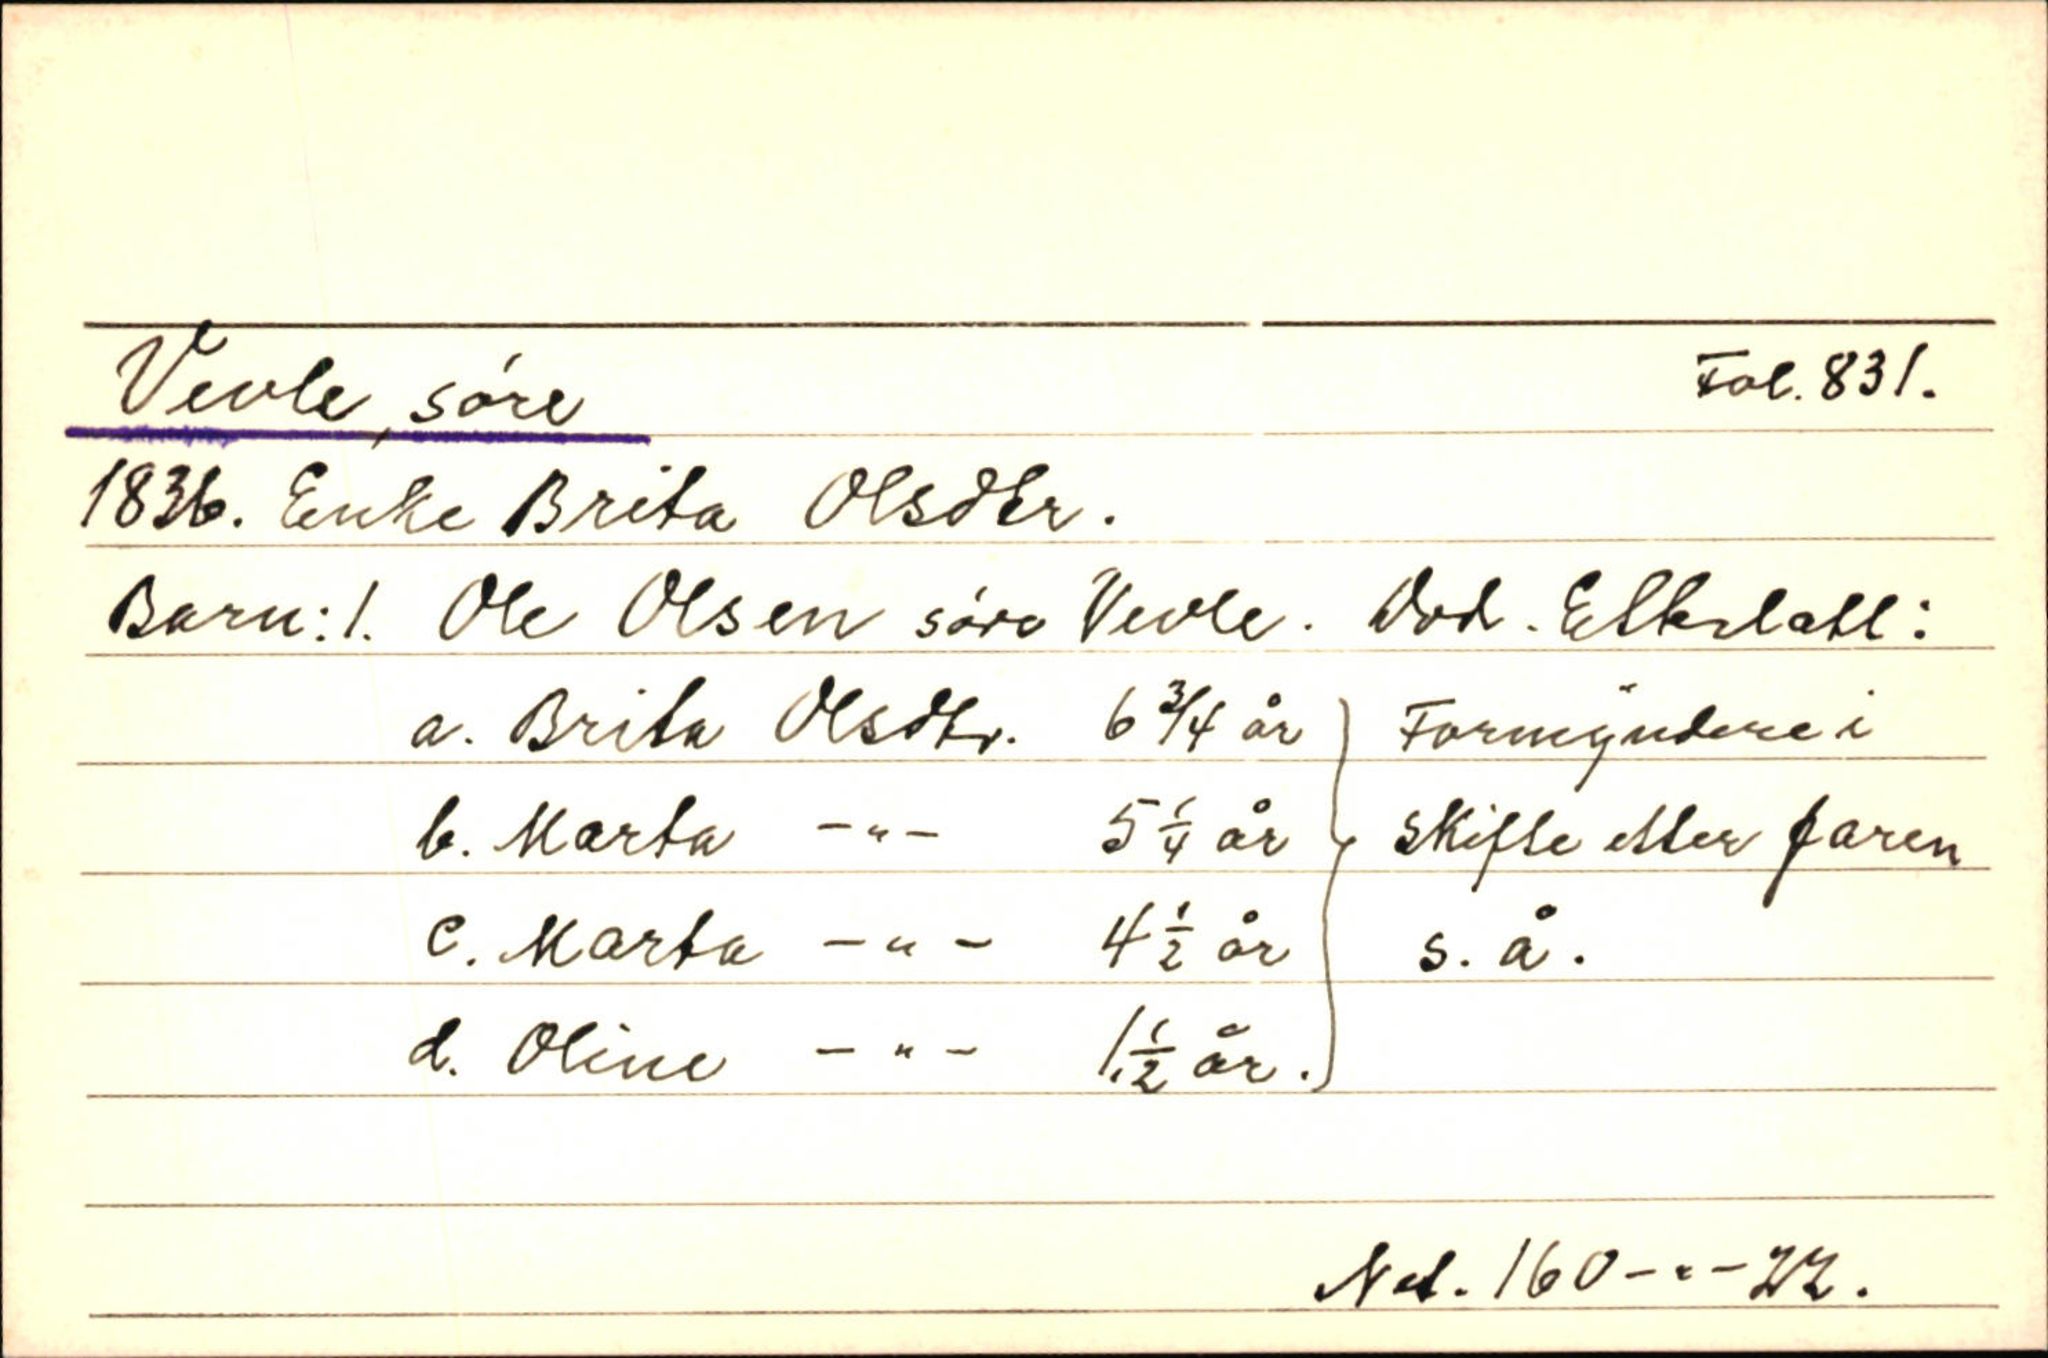 Vevle, søre Fol. 831.
1836. Enke Brita Olsdtr.
Barn: 1. Ole Olsen søre Vevle. Död. Etterlatt:
a. Brita Olsdtr. 6 3/4 år Formyndere i
b. Marta -"- 5 1/4 år skifte etter faren
c. Marta -"- 4 1/2 år s. å.
d. Oline -"- 1 1/2 år.
Net. 160-"-22.